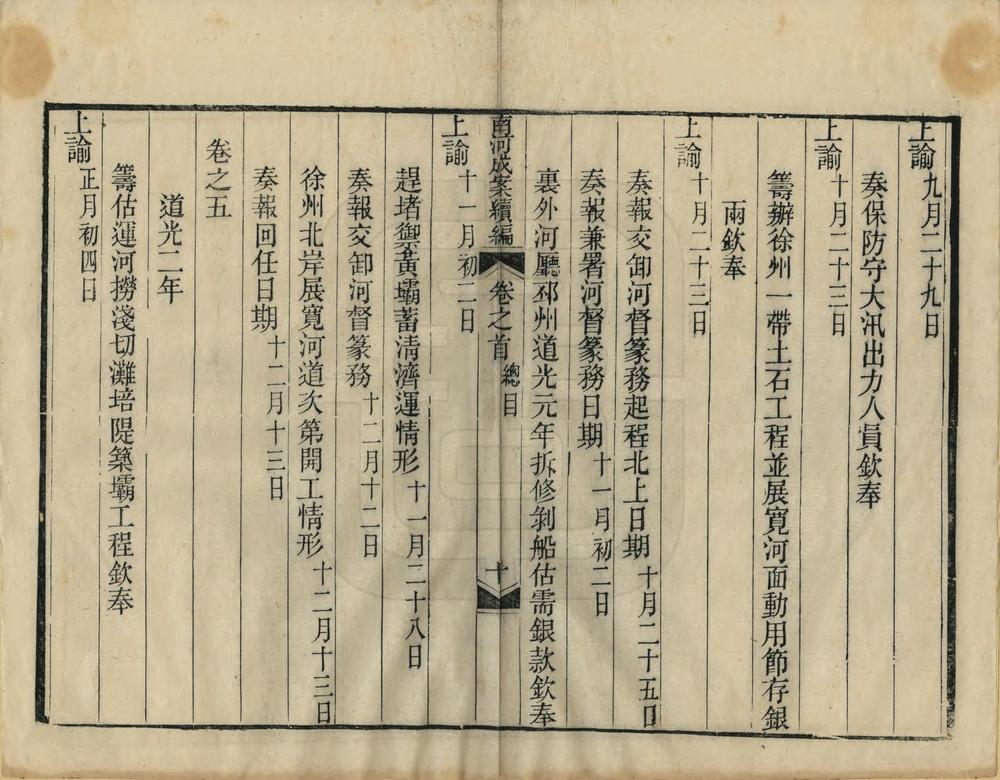 上諭九月二十九日
奏保防守大汛出力人員欽奉
上諭十月二十三日
籌辦徐州一帶土石工程並展寬河面動用節存銀
兩欽奉
上諭十月二十三日
奏報交卸河督篆務起程北上日期十月二十五日
奏報兼署河督篆務日期十一月初二日
裏外河廳邳州道光元年拆修剝船估需銀款欽奉
南河成案續編 卷之首 總目 十
上諭十一月初二日
趕堵禦黃壩蓄清濟運情形十一月二十八日
奏報交卸河督篆務十二月十二日
徐州北岸展寬河道次第開工情形十二月十三日
奏報回任日期十二月十三日
卷之五
道光二年
籌估運河撈淺切灘培隄築壩工程欽奉
上諭正月初四日